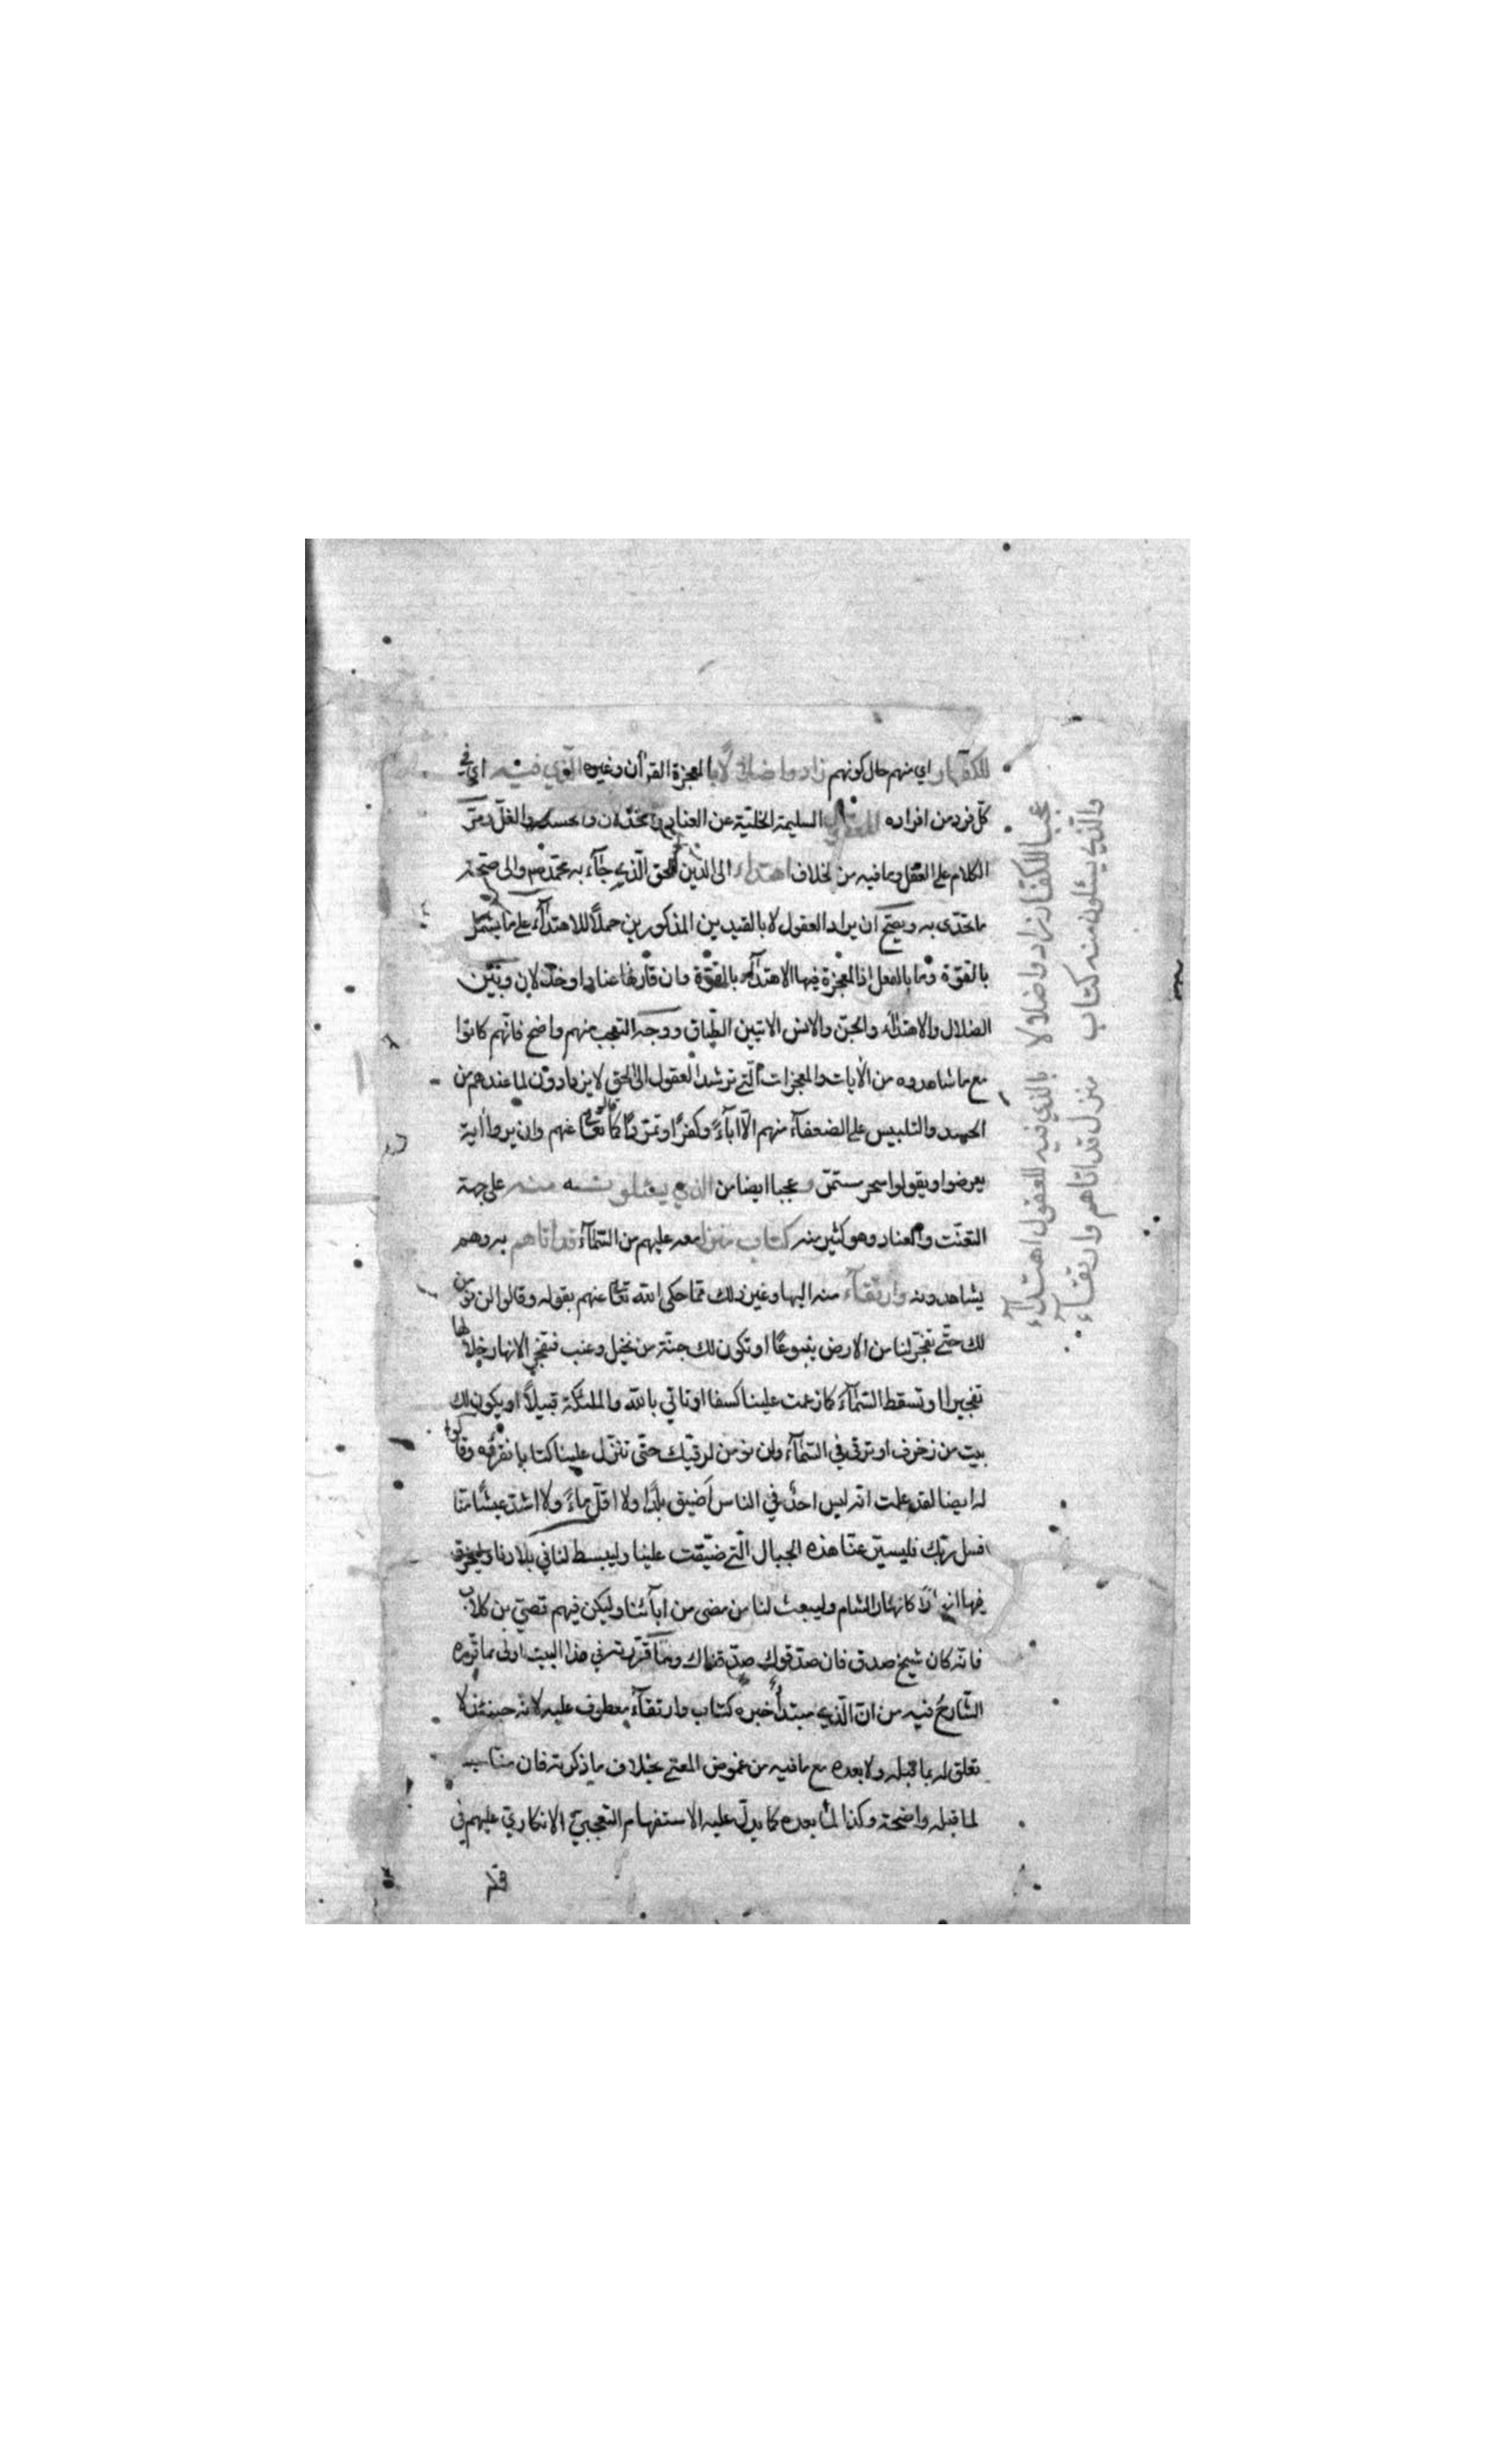 للكفار اي منهم حال كونهم زادوا ضلالًا بالمعجزة القرآن وغيره الذي فيه اي في
كلّ فرد من افراده للعقول السليمة الخليّة عن العناد والخذلان والحسد والغلّ ومرّ
الكلام على العقل وما فيه من الخلاف اهتداء الى الدّين الحق الّذي جآء به محمّد ص والى صحّة
ما تحدّى به ويصحّ ان يراد العقول لا بالقيدين المذكورين حملاً للاهتدآء على ما يشمل
بالقوّة وما بالفعل اذ المعجزة فيها الاهتدآء بالقوّة وان قارنها عناد او خذلان وبَيْن
الضلال والاهتدآء والجنّ والانس الاتيين الطّباق ووجه التعجب منهم واضح فانّهم كانوا
مع ما شاهدوه من الآيات والمعجزات الّتي ترشد العقول الى الحق لا يزدادون لما عندهم من
الحسد والتلبيس على الضعفآء منهم الّا اباءً وكفرًا وتمرّدًا كما قال تعالى عنهم وان يروا اٰية
يعرضوا ويقولوا سحر مستمرّ وعجبا ايضا من الذي يسئلونه منه على جهة
التعنّت والعناد وهو كثير منه كتاب منزل معه عليهم من السّمآء قد اتاهم به وهم
يشاهدونه وارتقآء منه اليها وغير ذلك ممّا حكى الله تعا عنهم بقوله وقالوا لن نؤمن
لك حتّى تفجّر لنا من الارض ينبوعًا او تكون لك جنّة من نخيل وعنب فتفجر الانهار خلالها
تفجيرا او تسقط السّمآء كما زعمت علينا كسفا او تاتي بالله والملئكة قبيلاً او يكون لك
بيت من زخرف او ترقى في السّمآء ولن نؤمن لرقيك حتّى تنزّل علينا كتابا نقرؤه وقالوا
له ايضا لقد علمت انّه ليس احدٌ في الناس اَضيق بلدًا ولا اقلّ ماءً ولا اشدّ عيشًا منّا
فسل ربّك فليسيّر عنّا هذه الجبال الّتي ضيّقت علينا وليبسط لنا في بلادنا وليخرق
فيها انهارًا كانهار الشام وليبعث لنا من مضى من اٰبآئنا وليكن فيهم قصيّ بن كلاب
فانّه كان شيخ صدق فان صدّقوك صدّقناك وما قرّرته في هذا البيت اولى مما قرّره
الشّارح فيه من انّ الّذي مبتدأ خبره كتاب وارتقآء معطوف عليه لانّه حينئذ لا
تعلق له بما قبله ولا بعده مع ما فيه من غموض المعنى بخلاف ما ذكرته فان مناسبـ
لما قبله واضحة وكذا لما بعده كما يدلّ عليه الاستفهام التعجبيّ الانكاريّ عليهم في
عجبا للكفار زادوا ضلالا بالذي فيه للعقول اهتدآء
والّذي يسئلون منه كتاب منزل قد اتاهم وارتقآء